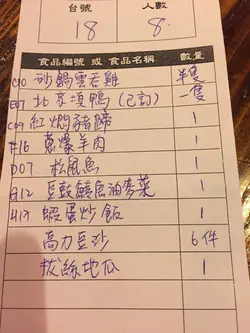 台號 人數
18 8
食品編號 或 食品名稱 數量
C10 砂鍋雲吞雞 半隻
E01 北京填鴨(已訂) 隻
C09 紅燜豬蹄 1
F16 蔥爆羊肉 1
D07 松鼠魚 1
G12 豆豉鯪魚油麥菜 1
H13 蝦蛋炒飯 1
高力豆沙 6件
拔絲地瓜 1